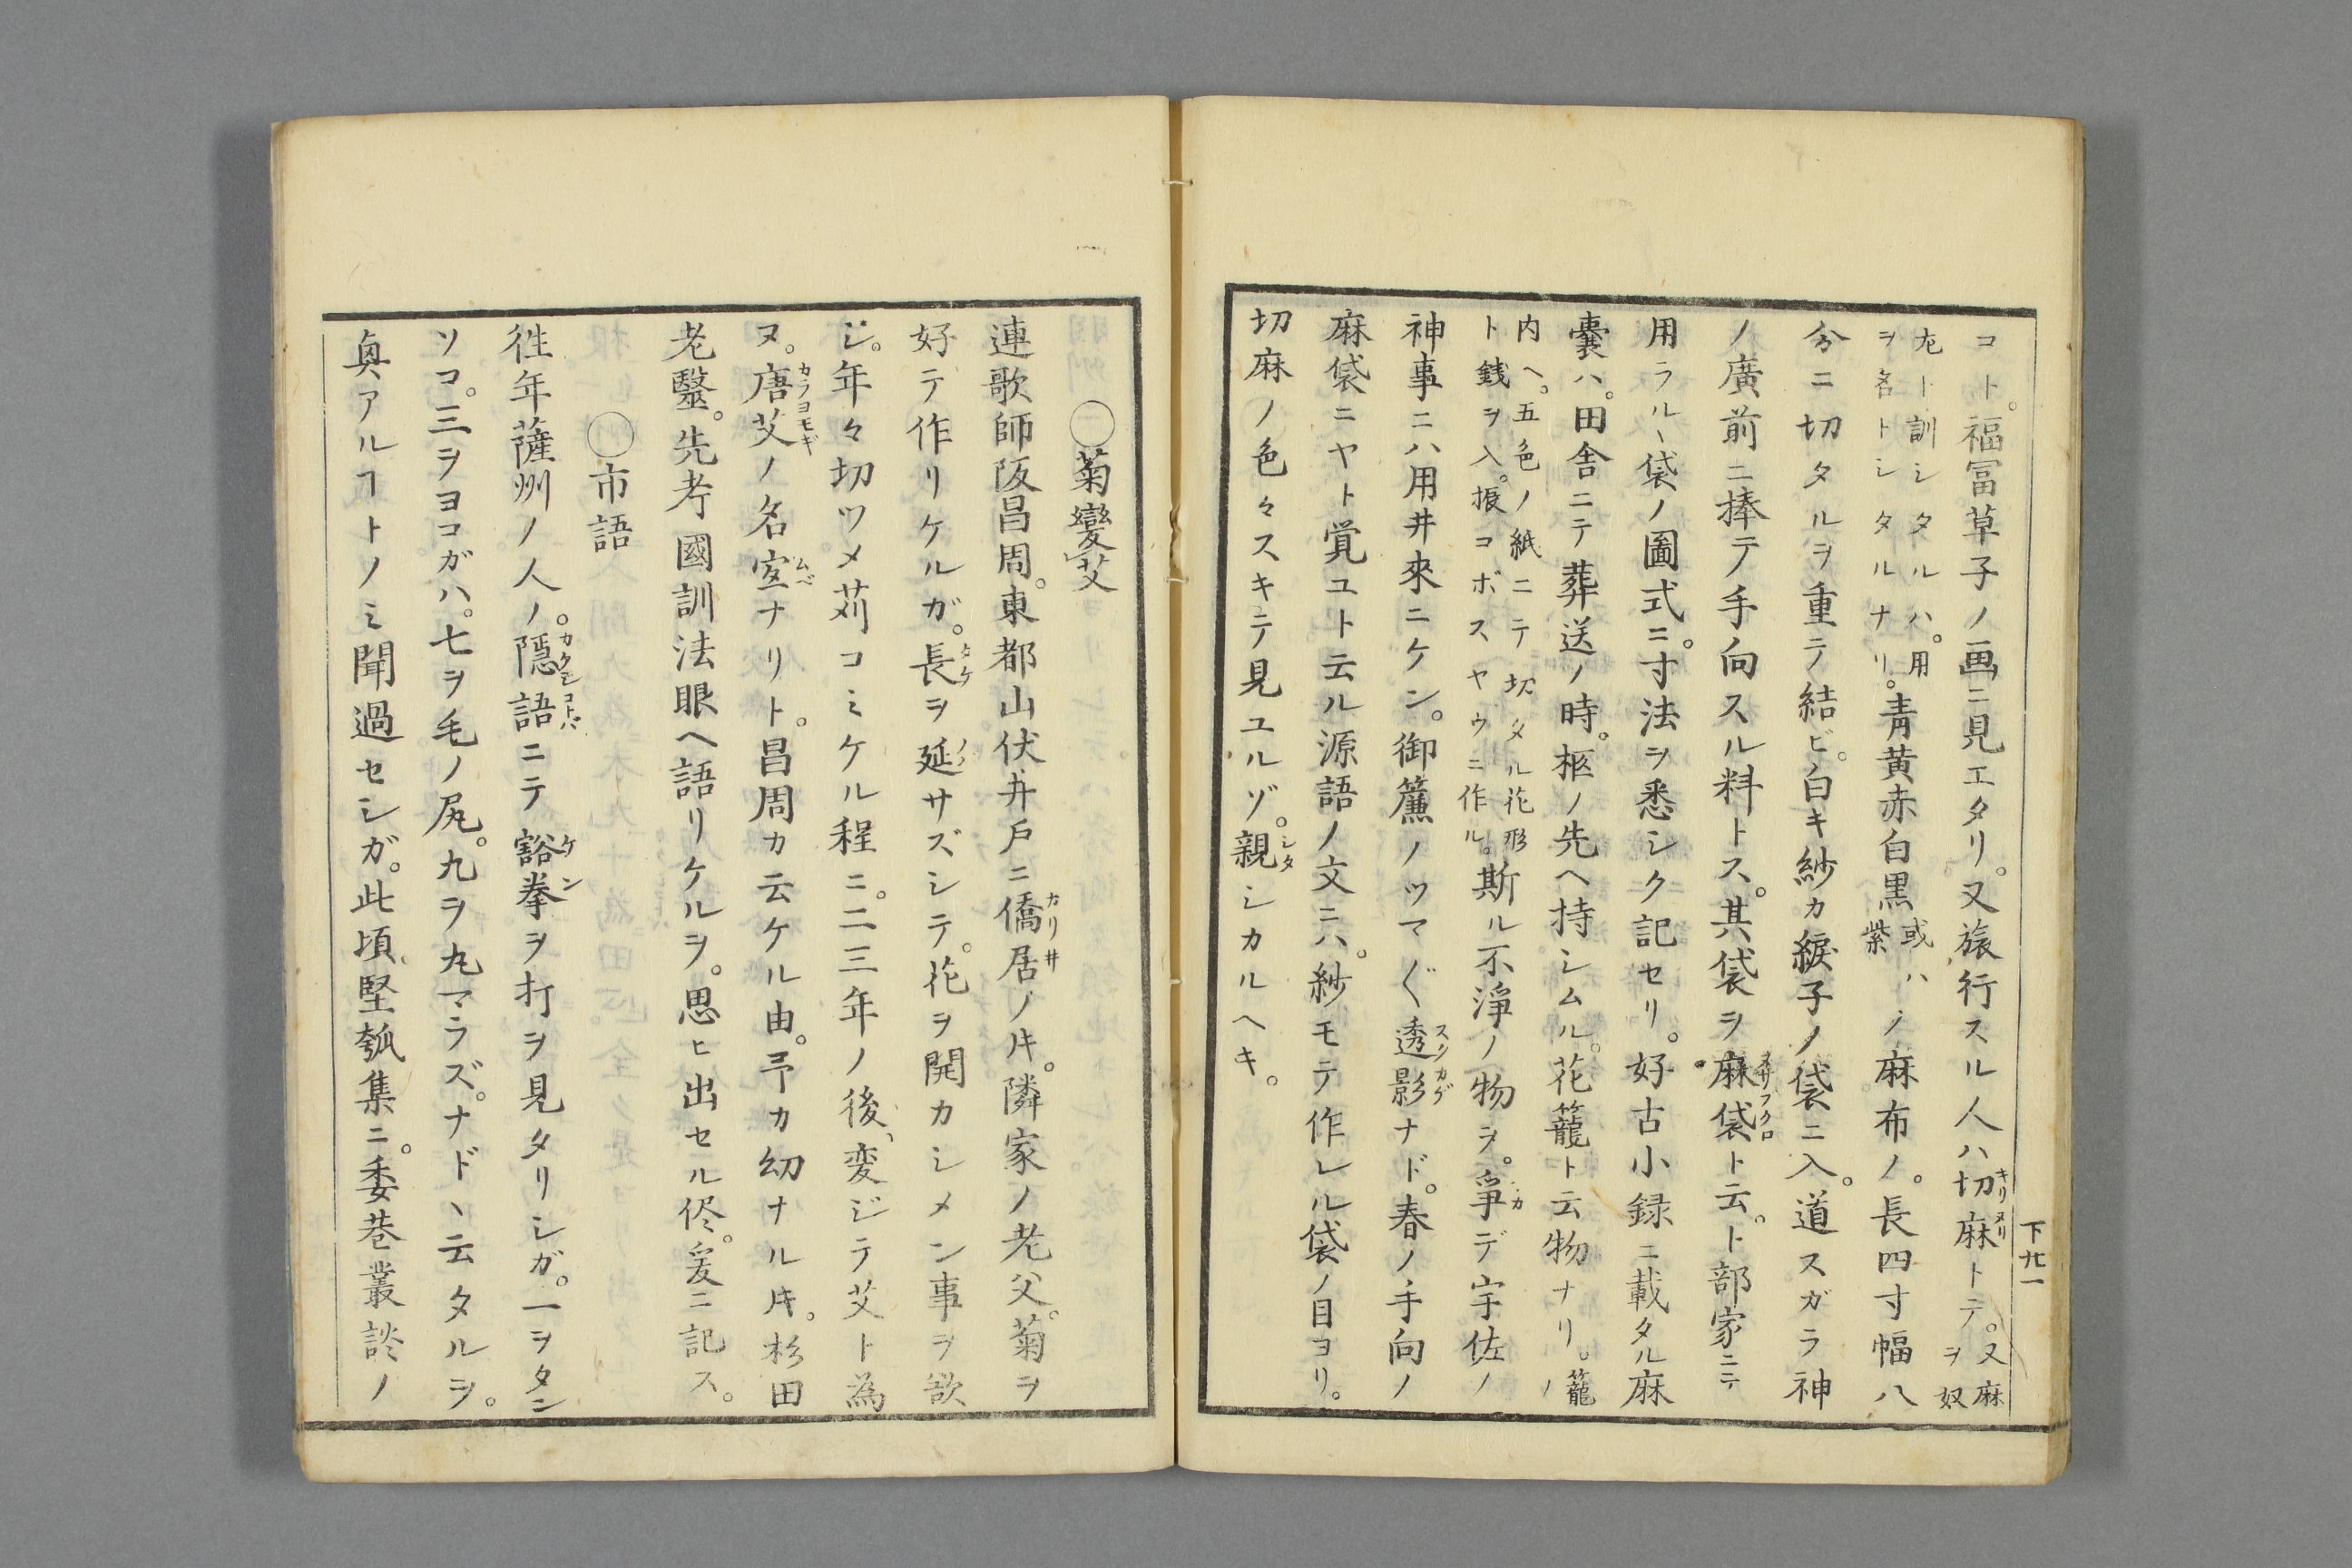 下廿一
コト。福冨草子ノ画ニ見エタリ。又旅行スル人ハ切麻トテ。又麻ヲ奴
左ト訓シタルハ。用ヲ畧トシタルナリ。青黄赤白黒或ハ紫ノ麻布ノ。長四寸幅八
分ニ切タルヲ重テ結ビ。白キ紗カ綟子ノ袋ニ入。道スガラ神
ノ廣前ニ捧テ手向スル料トス。其袋ヲ麻袋ト云。ト部家ニテ
用ラルヽ袋ノ圖式ニ。寸法ヲ悉シク記セリ。好古小録ニ載タル麻
嚢ハ。田舎ニテ葬送ノ時。柩ノ先ヘ持シムル。花籠ト云物ナリ。籠ノ
内ヘ。五色ノ紙ニテ切タル花形ト銭ヲ入。振コボスヤウニ作ル。斯ル不淨ノ物ヲ。爭デ宇佐ノ
神事ニハ用井來ニケン。御簾ノツマ〴〵透影ナド。春ノ手向ノ
麻袋ニヤト覚ユト云ル源語ノ文ニハ。紗モテ作レル袋ノ目ヨリ。
切麻ノ色々スキテ見ユルゾ。親シカルヘキ。
〇菊變艾
連歌師阪昌周。東都山伏井戸ニ僑居ノ𪜈。隣家ノ老父。菊ヲ
好テ作リケルガ。長ヲ延サズシテ。花ヲ開カシメン事ヲ欲
シ。年々切ツメ苅コミケル程ニ。二三年ノ後、変ジテ艾ト為
ヌ。唐艾ノ名宜ナリト。昌周カ云ケル由。予カ幼ナル𪜈。杉田
老醫。先考國訓法眼ヘ語リケルヲ。思ヒ出セル侭。爰ニ記ス。
〇市語
徃年薩州ノ人ノ。隱語ニテ豁拳ヲ打ヲ見タリシガ。一ヲタン
ソコ。三ヲヨコガハ。七ヲ毛ノ尻。九ヲ丸マラズ。ナドヽ云タルヲ。
奥アルヿトノミ聞過セシガ。此頃堅瓠集ニ。委巷叢談ノ